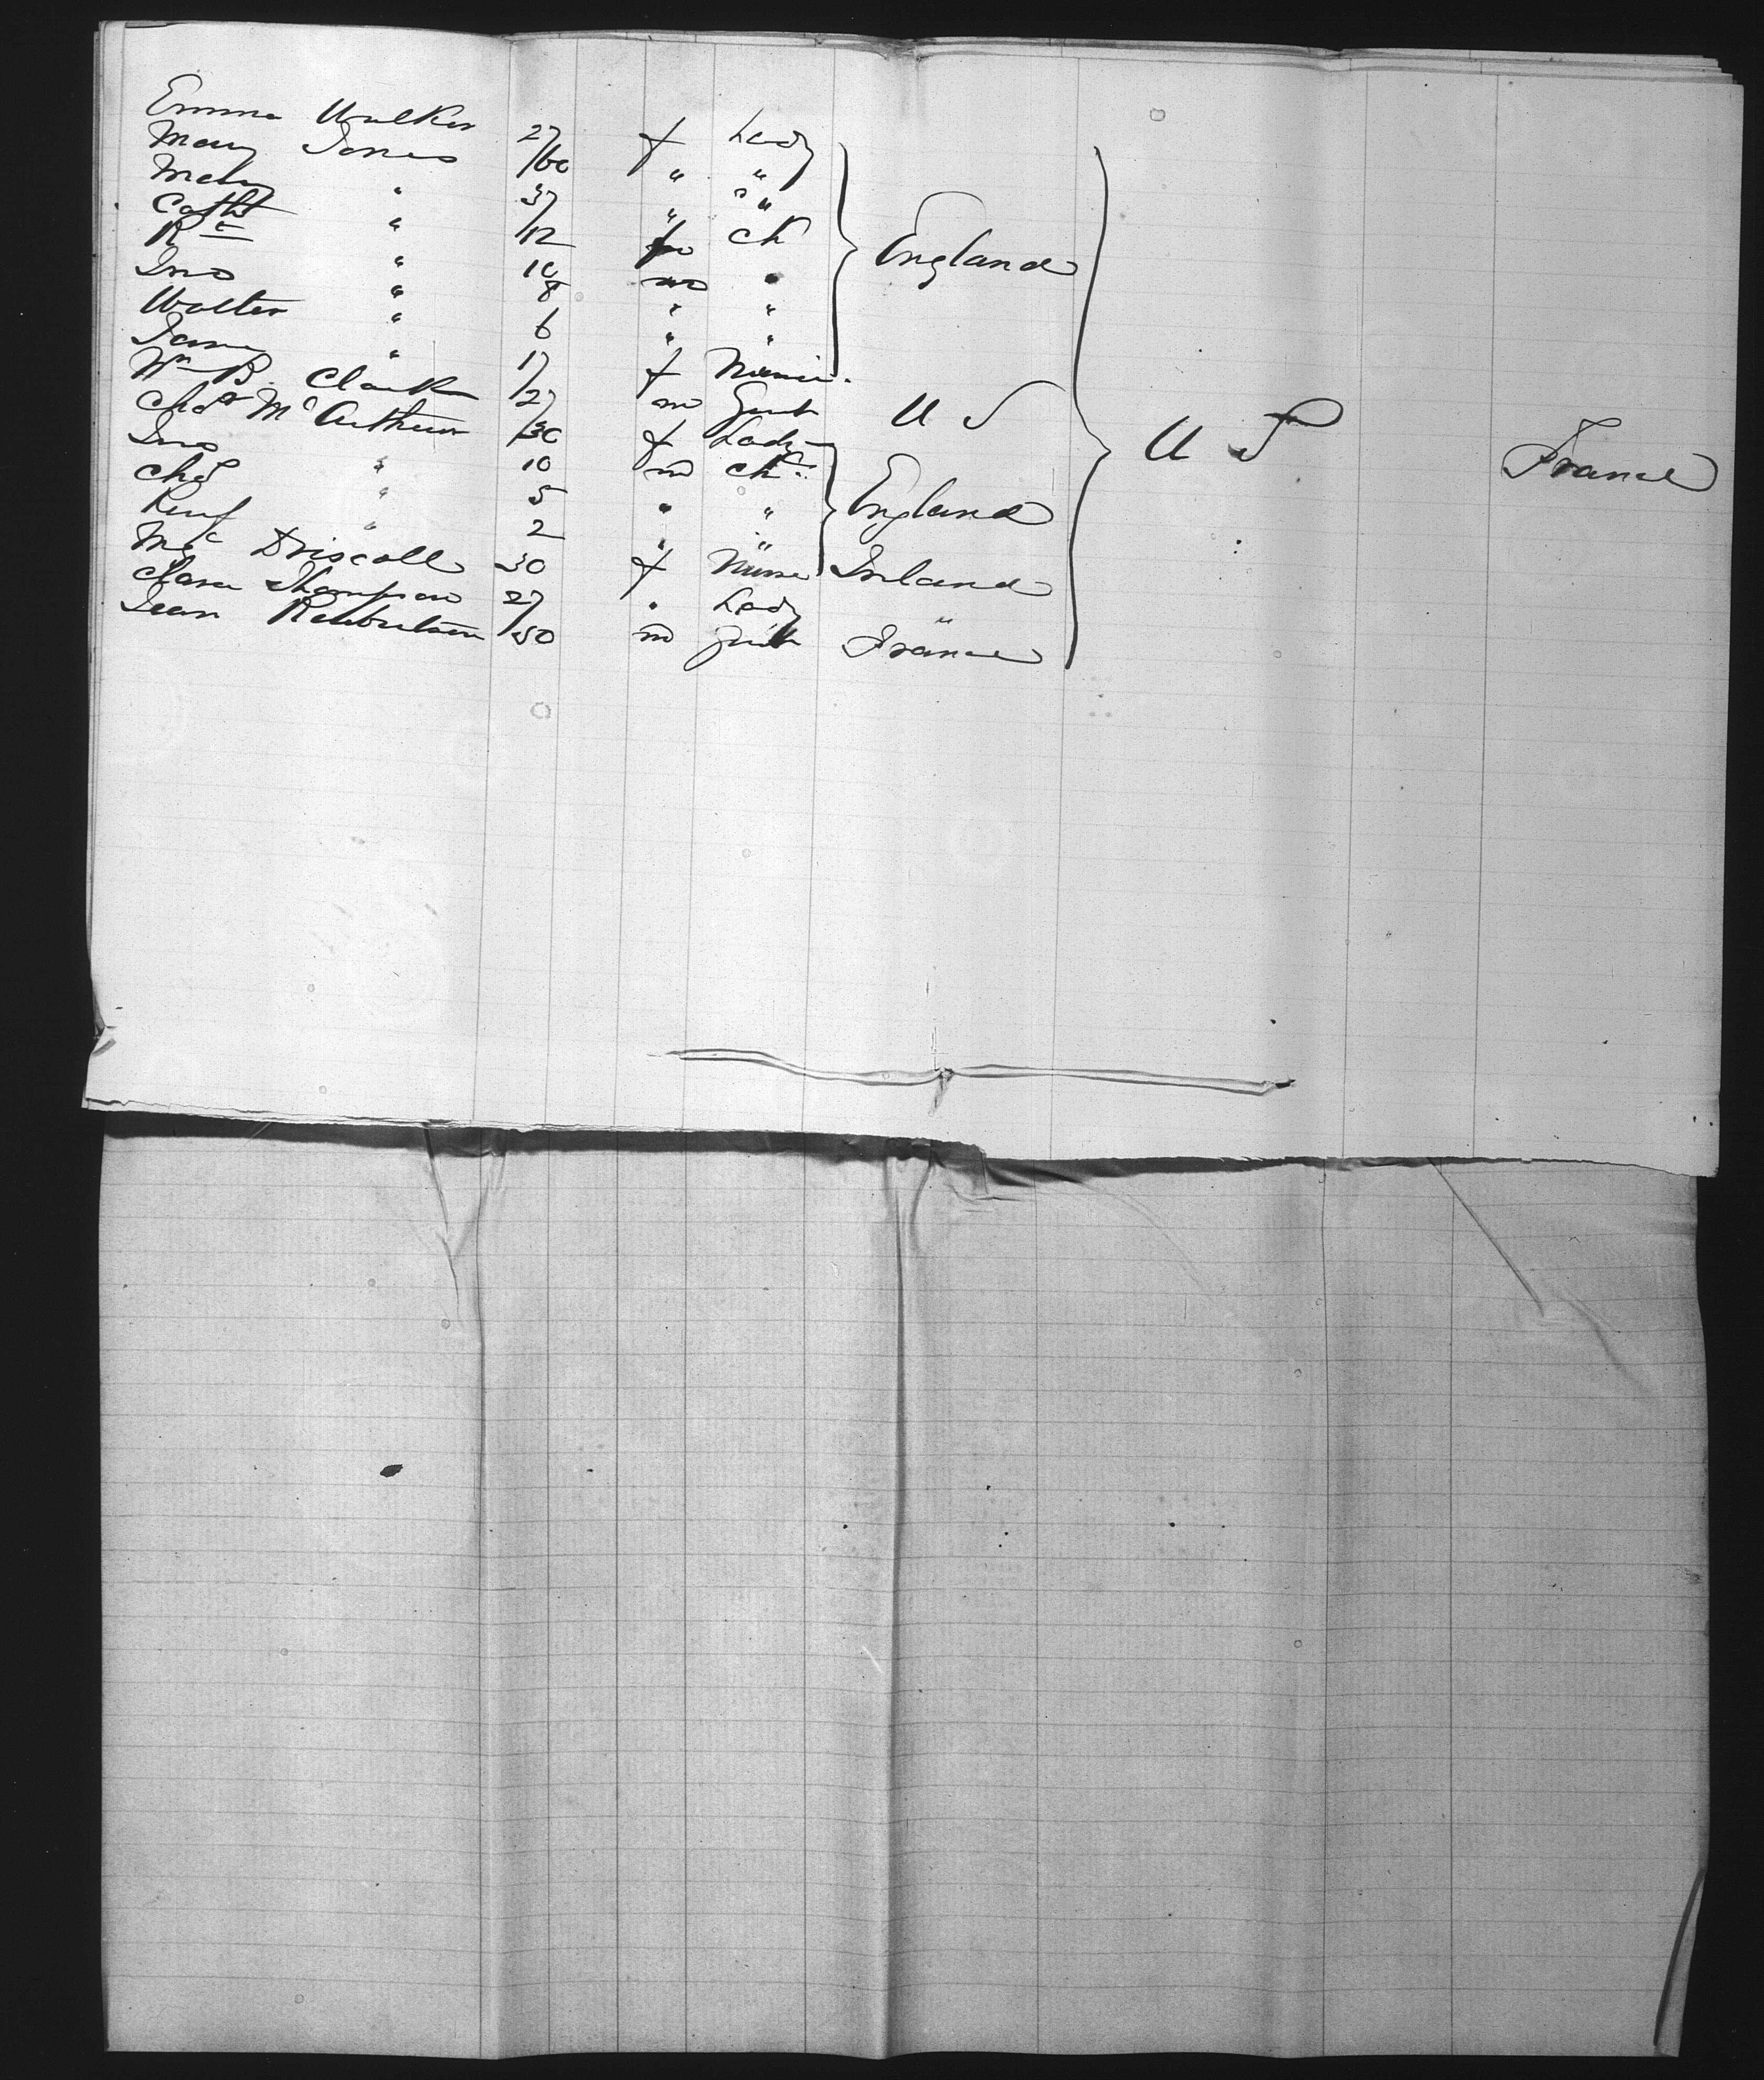 Emma Walker 27 f Lady
Mary Jones 60 " "
" 37 " "
Cath " 12 f Ch England
R " 10 m "
Jno " 8 " "
Walter " 6 " "
Jane " 17 f
Wm B. Clark 27 m Gent U S
Chas McArthur 30 f Lady U S France
Jno " 10 m Ch
Chs " 5 " " England
" 2 " "
Driscoll 30 f Nurse Ireland
Clara Thompson 27 " Lady "
Jean 50 m Gent France